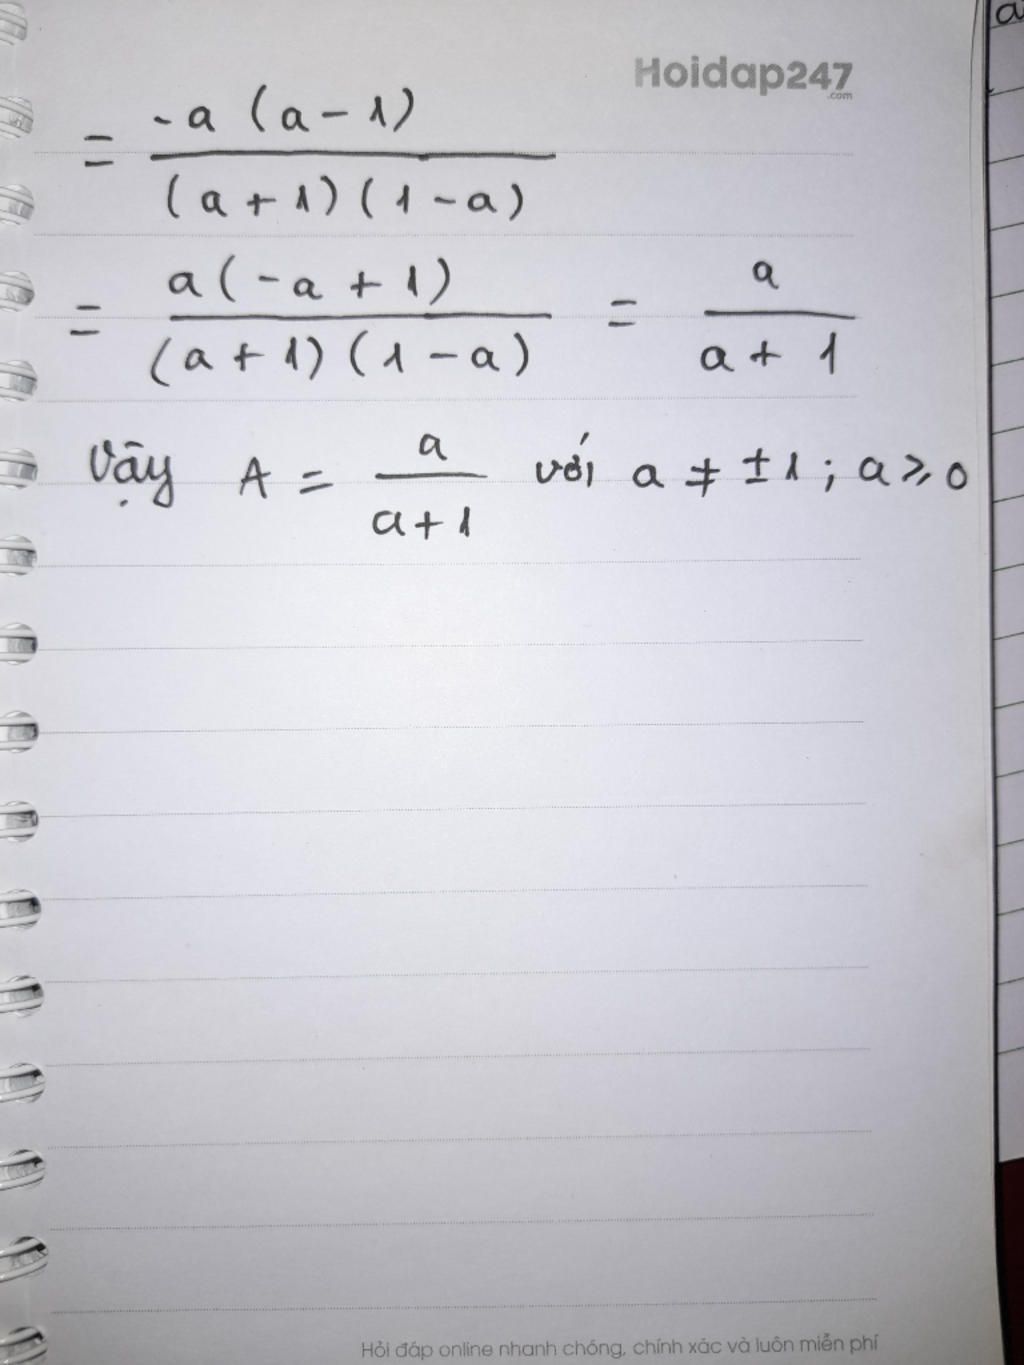 Hoidap247
.com
= -a (a - 1) / (a + 1)(1 - a)
= a(-a + 1) / (a + 1)(1 - a) = a / a + 1
Vậy A = a / a+1 với a ≠ ±1 ; a ≥ 0
Hỏi đáp online nhanh chóng, chính xác và luôn miễn phí
a